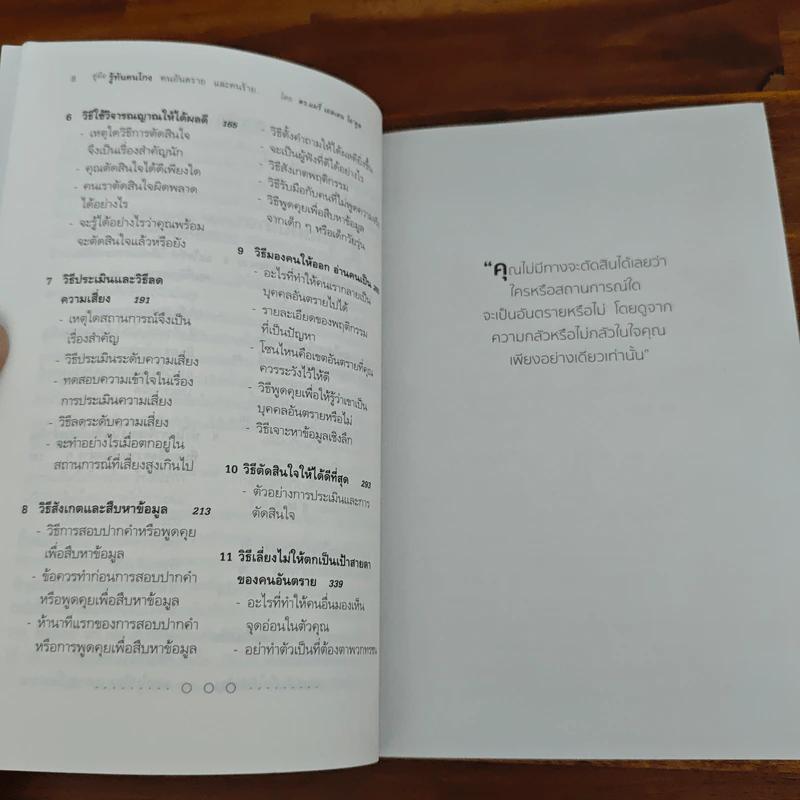 8 คู่มือ รู้ทันคนโกง คนอันตราย และคนร้าย
6 วิธีใช้วิจารณญาณให้ได้ผลดี 165
- เหตุใดวิธีการตัดสินใจ
จึงเป็นเรื่องสำคัญนัก
- คุณตัดสินใจได้ดีเพียงใด
- คนเราตัดสินใจผิดพลาด
ได้อย่างไร
- จะรู้ได้อย่างไรว่าคุณพร้อม
จะตัดสินใจแล้วหรือยัง
7 วิธีประเมินและวิธีลด
ความเสี่ยง 191
- เหตุใดสถานการณ์จึงเป็น
เรื่องสำคัญ
- วิธีประเมินระดับความเสี่ยง
- ทดสอบความเข้าใจในเรื่อง
การประเมินความเสี่ยง
- วิธีลดระดับความเสี่ยง
- จะทำอย่างไรเมื่อตกอยู่ใน
สถานการณ์ที่เสี่ยงสูงเกินไป
8 วิธีสังเกตและสืบหาข้อมูล 213
- วิธีการสอบปากคำหรือพูดคุย
เพื่อสืบหาข้อมูล
- ข้อควรทำก่อนการสอบปากคำ
หรือพูดคุยเพื่อสืบหาข้อมูล
- ห้านาทีแรกของการสอบปากคำ
หรือการพูดคุยเพื่อสืบหาข้อมูล
โดย ดร.แมรี่ เอลเลน
- วิธีตั้งคำถามให้ได้ผลดียิ่งขึ้น
- จะเป็นผู้ฟังที่ดีได้อย่างไร
- วิธีสังเกตพฤติกรรม
- วิธีรับมือกับคนที่ไม่พูดความจริง
- วิธีพูดคุยเพื่อสืบหาข้อมูล
จากเด็ก ๆ หรือเด็กวัยรุ่น
9 วิธีมองคนให้ออก อ่านคนเป็น
- อะไรที่ทำให้คนเรากลายเป็น
บุคคลอันตรายไปได้
- รายละเอียดของพฤติกรรม
ที่เป็นปัญหา
- โซนไหนคือเขตอันตรายที่คุณ
ควรระวังไว้ให้ดี
- วิธีพูดคุยเพื่อให้รู้ว่าเขาเป็น
บุคคลอันตรายหรือไม่
- วิธีเจาะหาข้อมูลเชิงลึก
10 วิธีตัดสินใจให้ได้ดีที่สุด 293
- ตัวอย่างการประเมินและการ
ตัดสินใจ
11 วิธีเลี่ยงไม่ให้ตกเป็นเป้าสายตา
ของคนอันตราย 339
- อะไรที่ทำให้คนอื่นมองเห็น
จุดอ่อนในตัวคุณ
- อย่าทำตัวเป็นที่ต้องตาพวกทรชน
“คุณไม่มีทางจะตัดสินได้เลยว่า
ใครหรือสถานการณ์ใด
จะเป็นอันตรายหรือไม่ โดยดูจาก
ความกลัวหรือไม่กลัวในใจคุณ
เพียงอย่างเดียวเท่านั้น”